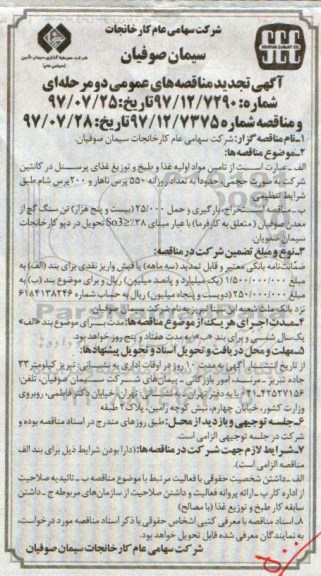 شرکت سهامی عام کارخانجات
سیمان صوفیان
شرکت سرمایه گذاری سیمان تأمین
(سهامی عام)
SOUFIAN CEMENT CO.
آگهی تجدید مناقصه‌های عمومی دو مرحله‌ای
شماره: ۹۷/۱۲/۷۲۹۰ تاریخ: ۹۷/۰۷/۲۵
و مناقصه شماره ۹۷/۱۲/۷۳۷۵ تاریخ: ۹۷/۰۷/۲۸
۱-نام مناقصه گزار: شرکت سهامی عام کارخانجات سیمان صوفیان.
۲-موضوع مناقصه‌ها:
الف-عبارت است از تامین مواد اولیه غذا و طبخ و توزیع غذای پرسنل در کانتین
شرکت به صورت حجمی حدودا به تعداد روزانه ۵۵۰ پرس ناهار و ۲۰۰ پرس شام طبق
شرایط تنظیمی
ب-مناقصه استخراج، بارگیری و حمل ۲۵/۰۰۰ (بیست و پنج هزار) تن سنگ گچ از
معدن صوفیان (متعلق به کارفرما) با عیار مبنای ۳۸٪ So3 تحویل در دپو کارخانجات
سیمان صوفیان.
۳-نوع و مبلغ تضمین شرکت در مناقصه:
ضمانت‌نامه بانکی معتبر و قابل تمدید (سه ماهه) یا فیش واریز نقدی برای بند (الف) به
مبلغ ۱/۵۰۰/۰۰۰/۰۰۰ (یک میلیارد و پانصد میلیون) ریال و برای موضوع بند (ب) به
مبلغ ۲۵۰/۰۰۰/۰۰۰ (دویست و پنجاه میلیون) ریال به حساب شماره ۶۱۸۴۱۳۸۲۴۶
نزد بانک ملت به نام شرکت سیمان صوفیان.
۴-مدت اجرای هر یک از موضوع مناقصه‌ها: مدت برای موضوع بند «الف»
یک‌سال شمسی و برای بند «ب» به مدت هفتاد و پنج روز خواهد بود.
۵-مهلت و محل دریافت و تحویل اسناد و تحویل پیشنهادها:
از تاریخ انتشار آگهی به مدت ۱۰ روز در اوقات اداری به نشانی: تبریز کیلومتر ۳۳
جاده تبریز - مرند، امور بازرگانی - پیمان‌های شرکت سیمان صوفیان، تلفن:
۰۴۱-۴۲۵۲۷۱۵۶ یا به دفتر تهران به نشانی: تهران، خیابان دکتر فاطمی، روبروی
وزارت کشور، خیابان چهارم، نبش کوچه رامین، پلاک ۳ طبقه
۶-جلسه توجیهی و بازدید از محل: طبق روزهای مندرج در اسناد مناقصه بوده و
شرکت در جلسه توجیهی الزامی است.
۷-شرایط لازم جهت شرکت در مناقصه‌ها: (دارا بودن شرایط ذیل برای بند الف
مناقصه الزامی است).
الف-داشتن شخصیت حقوقی با فعالیت مرتبط با موضوع مناقصه ب-تائیدیه صلاحیت
از اداره کار پ-ارائه پروانه فعالیت و داشتن صلاحیت از سازمان‌های مربوطه ج-داشتن
سابقه کار طبخ و توزیع غذا (با مصالح)
۸-اسناد مناقصه با معرفی کتبی اشخاص حقوقی با ذکر اسناد مناقصه مورد درخواست،
به نمایندگان معرفی شده قابل تحویل خواهد بود.
شرکت سهامی عام کارخانجات سیمان صوفیان